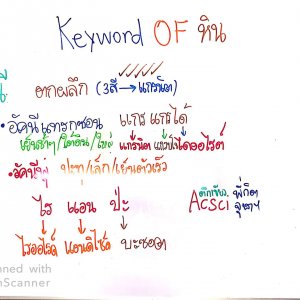 Keyword OF หิน
ตกผลึก (3สี → แกรนิต)
•อัคนีแทรกซอน แกร แกรได้
เย็นช้าๆ/ใต้ดิน/ใหญ่ แกรนิต แกบโบร ไดออไรต์
•อัคนีพุ ปะทุ/เล็ก/เย็นตัวเร็ว
ไร แอน ปะ
ไรออไรต์ แอนดีไซต์ บะซอลต์
ติกเข้บ. พี่กิต
ACSCI จุฬาฯ
nned with
Scanner